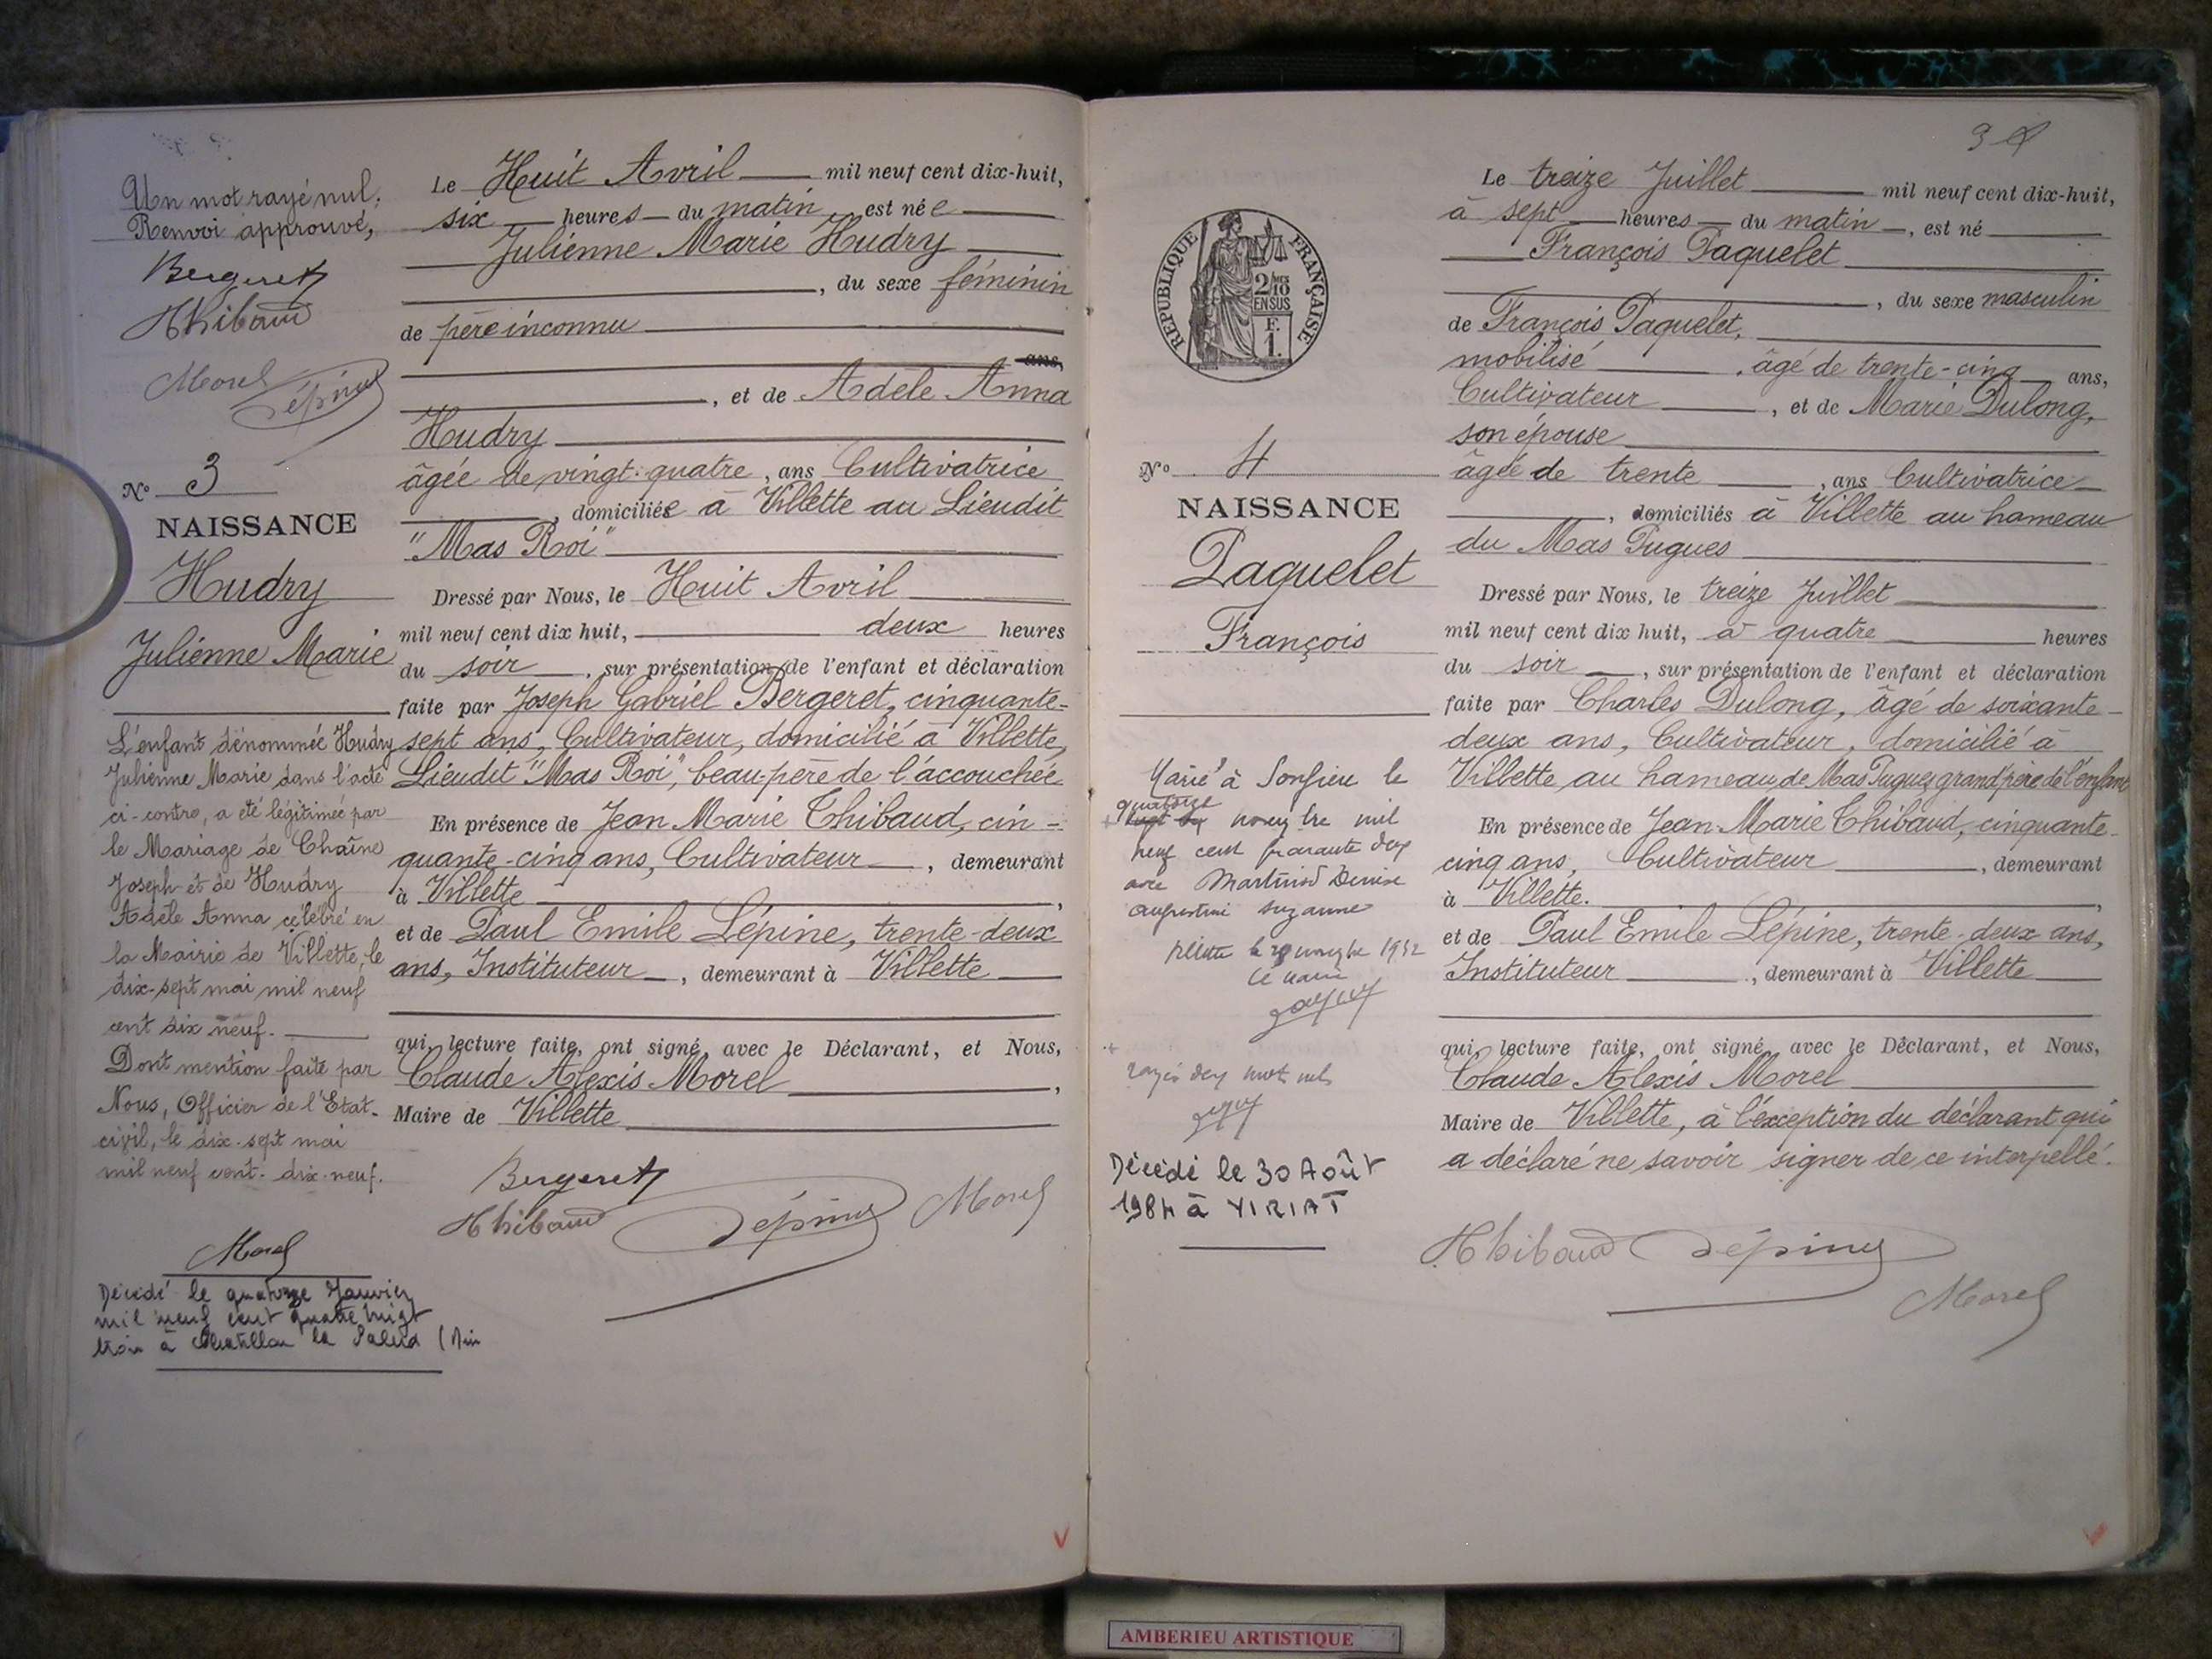 Un mot rayé nul.
Renvoi approuvé,
Bergeret
Thibaud
Morel
Lépine
No 3
NAISSANCE
Hudry
Julienne Marie
L'enfant dénommée Hudry
Julienne Marie dans l'acte
ci-contre, a été légitimée par
le Mariage de Chaîne
Joseph et de Hudry
Adèle Anna célébré en
la Mairie de Villette, le
dix-sept mai mil neuf
cent dix neuf.
Dont mention faite par
Nous, Officier de l'Etat-
civil, le dix-sept mai
mil neuf cent-dix-neuf.
Morel
Décédé le quatorze Janvier
mil neuf cent quatre vingt
trois à Chatillon la Palud (Ain
Le Huit Avril mil neuf cent dix-huit,
six heures du matin est née
Julienne Marie Hudry
, du sexe féminin
de père inconnu
ans,
, et de Adèle Anna
Hudry
âgée de vingt-quatre, ans Cultivatrice
, domiciliée à Villette au Lieudit
"Mas Roi"
Dressé par Nous, le Huit Avril
mil neuf cent dix huit, deux heures
du soir, sur présentation de l'enfant et déclaration
faite par Joseph Gabriel Bergeret, cinquante-
sept ans, Cultivateur, domicilié à Villette,
Lieudit "Mas Roi", beau-père de l'accouchée
En présence de Jean Marie Thibaud, cin-
quante-cinq ans, Cultivateur, demeurant
à Villette,
et de Paul Emile Lépine, trente-deux
ans, Instituteur, demeurant à Villette
qui, lecture faite, ont signé, avec le Déclarant, et Nous,
Claude Alexis Morel,
Maire de Villette
Bergeret
Thibaud Lépine Morel
3
RÉPUBLIQUE FRANÇAISE
2/10 MES
EN SUS
F.
1.
No 4
NAISSANCE
Paquelet
François
Marié à Sonfieu le
quatorze
novembre mil
neuf cent quarante deux
avec Martinod Denise
augustine suzanne
Villette le novembre 1952
Le maire
rayés deux mots nuls
Décédé le 30 Août
1984 à VIRIAT
Le treize Juillet mil neuf cent dix-huit,
à sept heures du matin, est né
François Paquelet
, du sexe masculin
de François Paquelet,
mobilisé, âgé de trente-cinq ans,
Cultivateur, et de Marie Dulong,
son épouse
âgée de trente, ans Cultivatrice
, domiciliés à Villette au hameau
du Mas Pugues
Dressé par Nous, le treize Juillet
mil neuf cent dix huit, à quatre heures
du soir, sur présentation de l'enfant et déclaration
faite par Charles Dulong, âgé de soixante-
deux ans, Cultivateur, domicilié à
Villette au hameau de Mas Pugues grand'père de l'enfant
En présence de Jean-Marie Thibaud, cinquante-
cinq ans, Cultivateur, demeurant
à Villette.,
et de Paul Emile Lépine, trente-deux ans,
Instituteur, demeurant à Villette
qui, lecture faite, ont signé, avec le Déclarant, et Nous,
Claude Alexis Morel
Maire de Villette, à l'exception du déclarant qui
a déclaré ne savoir signer de ce interpellé.
Thibaud Lépine
Morel
AMBERIEU ARTISTIQUE